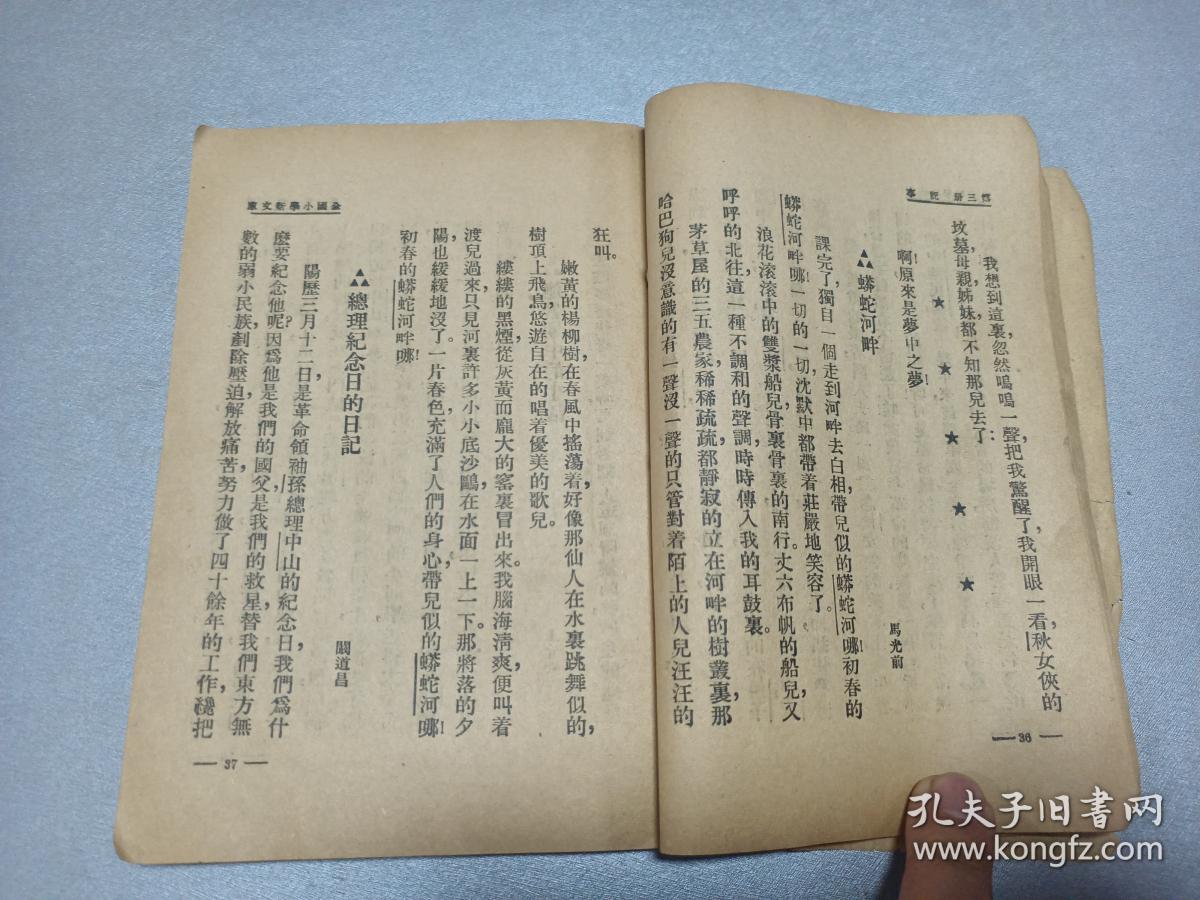 第三册 記事
我想到這裏忽然嗚嗚一聲,把我驚醒了,我開眼一看,秋女俠的
坟墓,母親,姊妹都不知那兒去了……
啊!原來是夢中之夢!
★ ★ ★ ★ ★
▲▲蟒蛇河畔
馬光前
課完了,獨自一個走到河畔去白相,帶兒似的蟒蛇河哪!初春的
蟒蛇河畔哪!一切的一切,沈默中都帶着莊嚴地笑容了。
浪花滚滚中的雙漿船兒,骨裏骨裏的南行。丈六布帆的船兒,又
呼呼的北往,這一種不調和的聲調,時時傳入我的耳鼓裏。
茅草屋的三五農家,稀稀疏疏,都靜寂的立在河畔的樹叢裏,那
哈巴狗兒沒意識的有一聲沒一聲的只管對着陌上的人兒汪汪的
— 36 —
全國小學新文庫
狂叫。
嫩黃的楊柳樹,在春風中搖蕩着,好像那仙人在水裏跳舞似的,
樹頂上飛鳥,悠遊自在的唱着優美的歌兒。
縷縷的黑煙,從灰黃而龐大的窰裏冒出來。我腦海淸爽,便叫着
渡兒過來,只見河裏許多小小底沙鷗,在水面一上一下。那將落的夕
陽,也緩緩地沒了。一片春色,充滿了人們的身心,帶兒似的蟒蛇河哪!
初春的蟒蛇河畔哪!
▲▲總理紀念日的日記
闞道昌
陽歷三月十二日,是革命領袖孫總理中山的紀念日,我們爲什
麼要紀念他呢?因爲他是我們的國父,是我們的救星,替我們東方無
數的弱小民族,剷除壓迫,解放痛苦,努力做了四十餘年的工作,纔把
— 37 —
孔夫子旧书网
www.kongfz.com